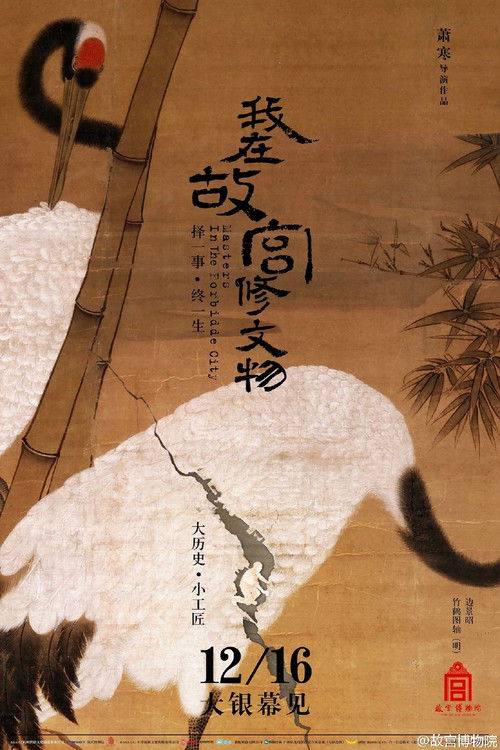 萧寒导演作品
我在故宫修文物
Masters
In The Forbidde City
择一事·终一生
大历史·小工匠
边景昭
竹鹤图轴（明）
12/16
大银幕见
故宫博物院
@故宫博物院